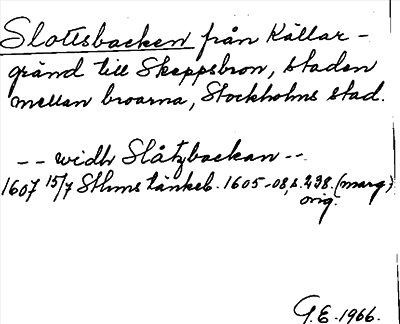 Slottsbacken från Källar-
gränd till Skeppsbron, staden
mellan broarna, Stockholms stad.
-- widh Slåtzbackan --
1607 15/7 Sthms tänkeb. 1605-08, s. 238. (marg)
orig.
G.E. 1966.